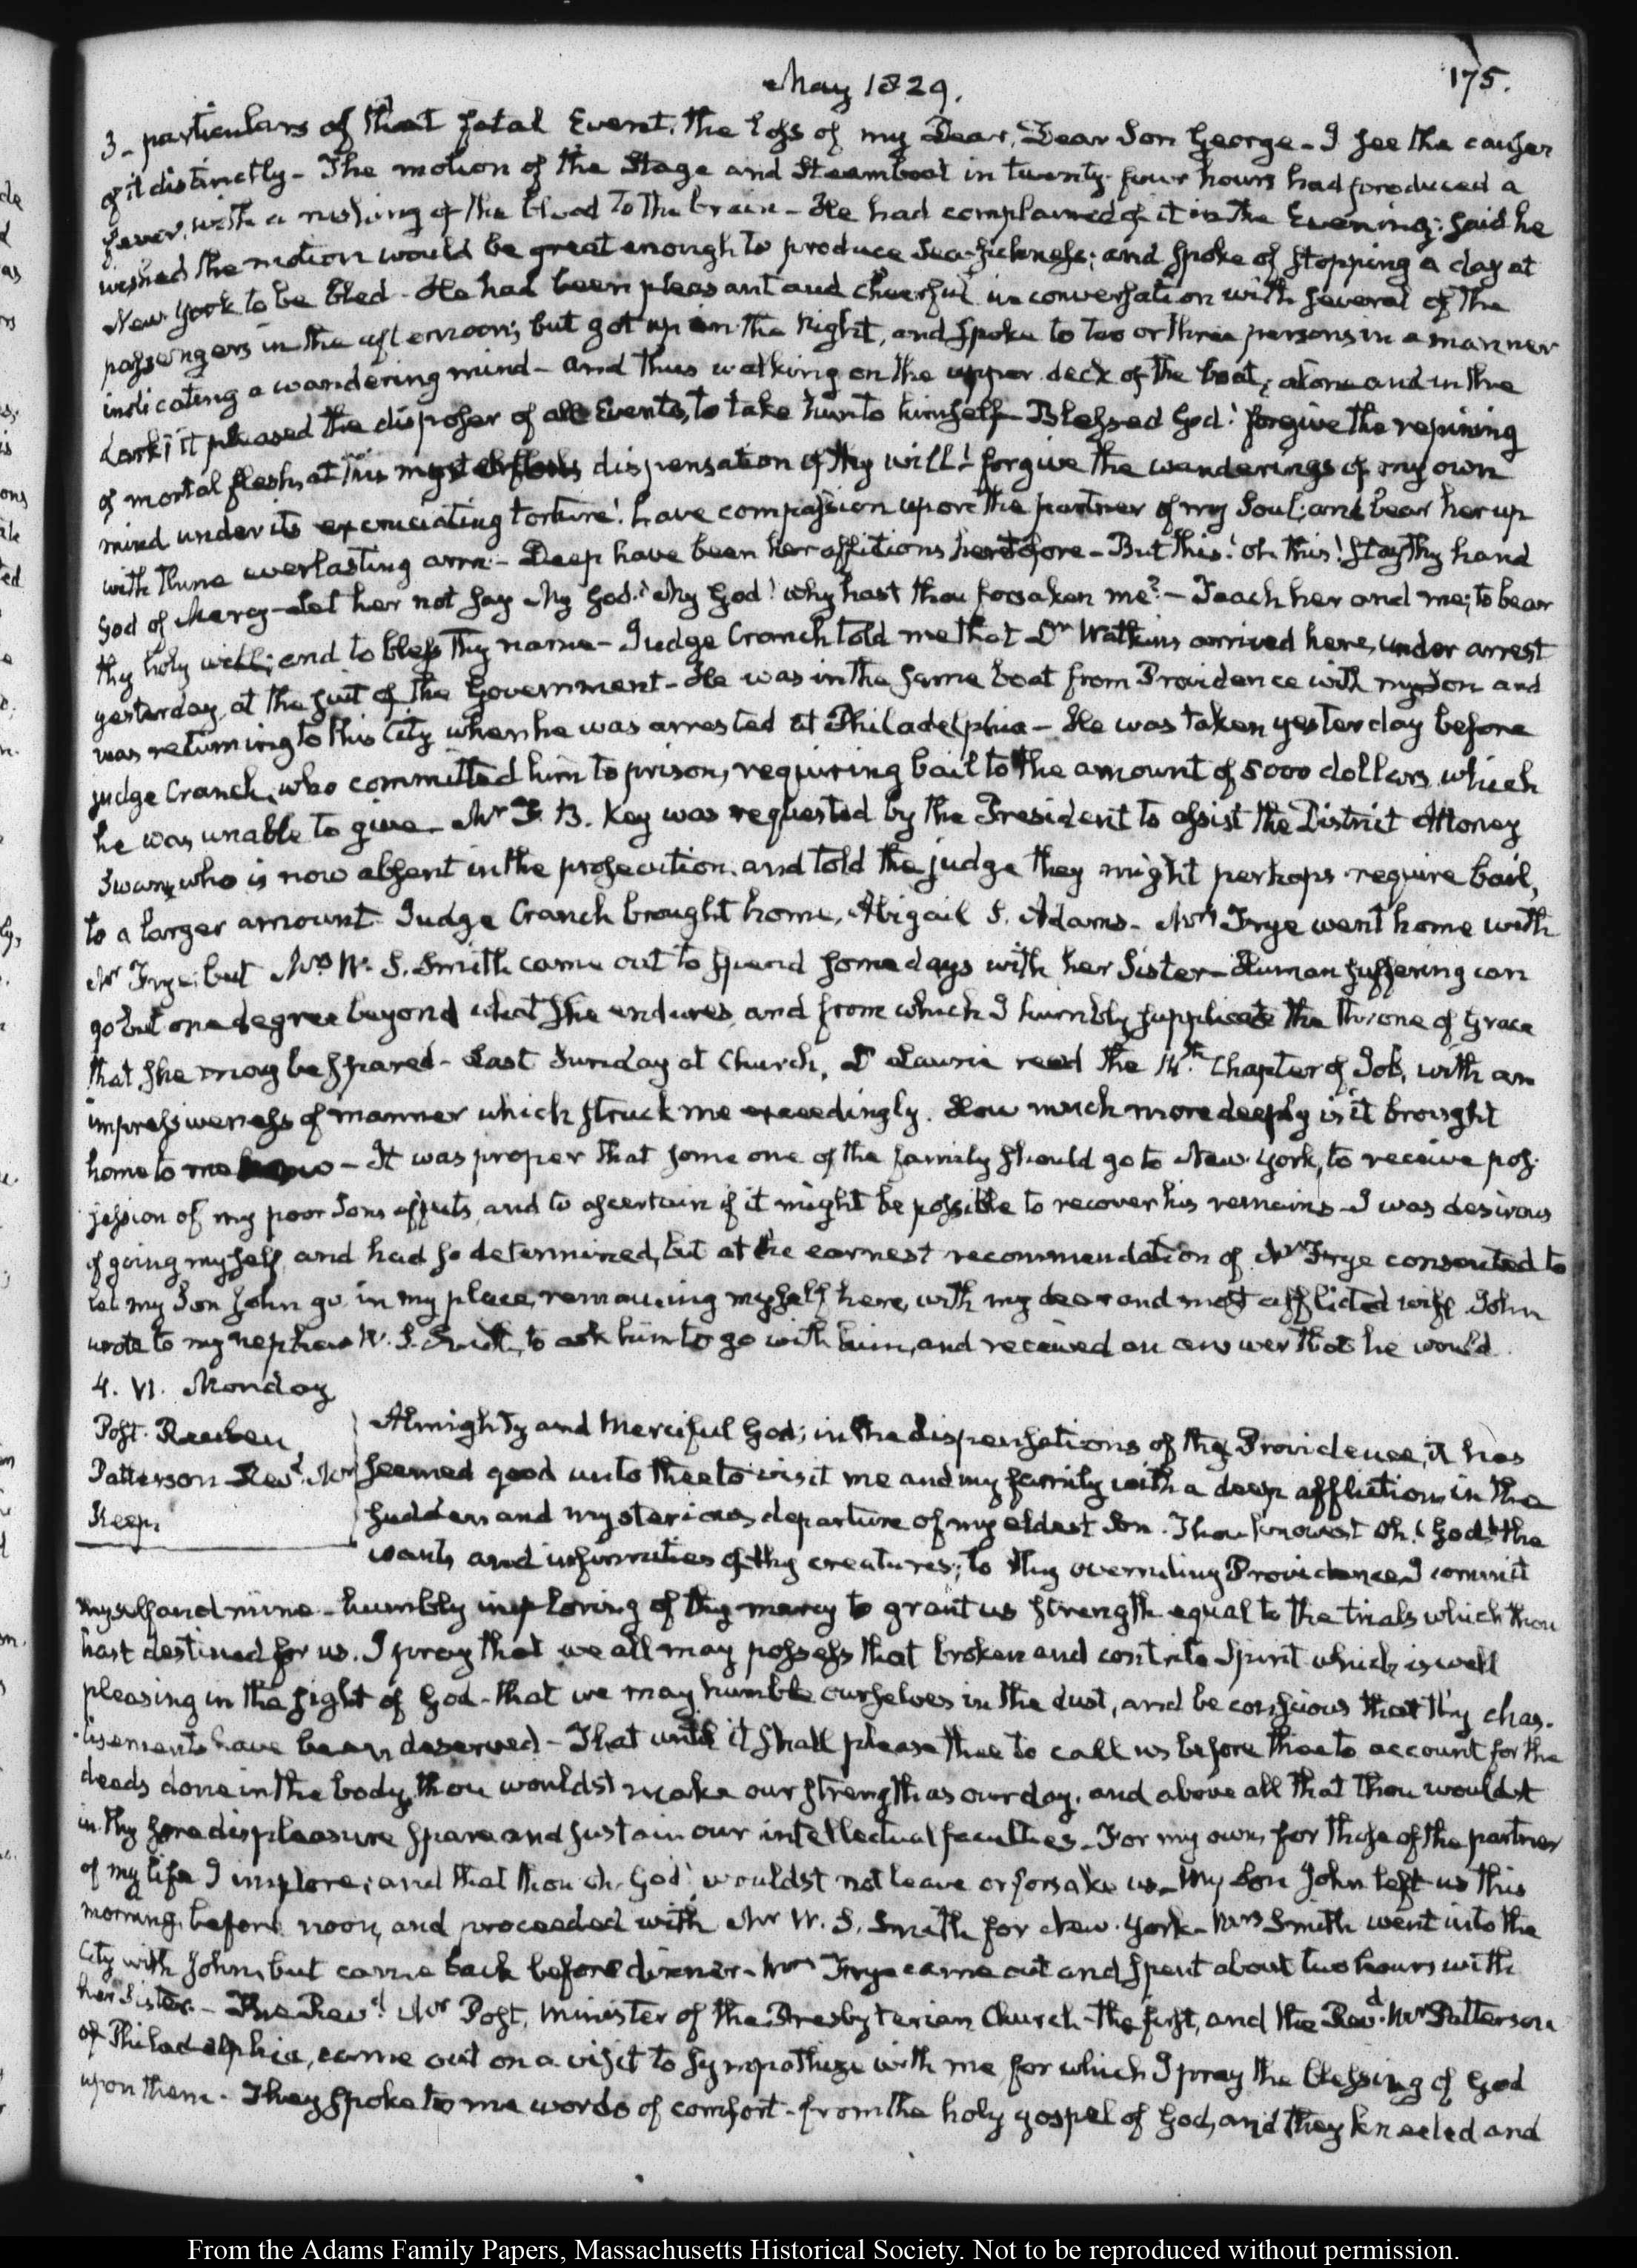 May 1829.
175.
3 - particulars of that fatal Event, the loss of my Dear, Dear Son George - I see the causes
of it distinctly - The motion of the Stage and Steamboat in twenty-four hours had produced a
fever, with a rushing of the blood to the brain - He had complained of it in the Evening; said he
wished the motion would be great enough to produce Sea-sickness; and spoke of stopping a day at
New-York to be bled - He had been pleasant and cheerful in conversation with several of the
passengers in the afternoon; but got up in the Night, and spoke to two or three persons in a manner
indicating a wandering mind - and thus walking on the upper deck of the boat, alone and in the
dark; it pleased the disposer of all Events, to take him to himself - Blessed God! forgive the repining
of mortal flesh, at this dispensation of thy will! forgive the wanderings of my own
mind under its excruciating torture! have compassion upon the partner of my Soul; and bear her up
with thine everlasting arm - Deep have been her afflictions heretofore - But this! oh this! Stay thy hand
God of Mercy - Let her not say My God! My God! why hast thou forsaken me? - Teach her and me; to bear
thy holy will; and to bless thy name - Judge Cranch told me that Dr. Watkins arrived here, under arrest
yesterday, at the suit of the Government - He was in the same boat from Providence with my Son and
was returning to this City when he was arrested at Philadelphia - He was taken yesterday before
judge Cranch, who committed him to prison, requiring bail to the amount of 5000 dollars, which
he was unable to give - Mr F. B. Key was requested by the President to assist the District Attorney
Swann, who is now absent in the prosecution, and told the judge they might perhaps require bail,
to a larger amount. Judge Cranch brought home, Abigail S. Adams - Mrs Frye went home with
Mr Frye; but Mrs W. S. Smith came out to spend some days with her Sister - Human suffering can
go but one degree beyond what she endures, and from which I humbly supplicate the throne of Grace
that she may be spared - Last Sunday at Church, Dr Laurie read the 14th Chapter of Job, with an
impressiveness of manner which struck me exceedingly. How much more deeply is it brought
home to me now - It was proper that some one of the family should go to New-York, to receive pos-
session of my poor Sons effects, and to ascertain if it might be possible to recover his remains - I was desirous
of going myself, and had so determined, but at the earnest recommendation of Mr Frye consented to
let my Son John go in my place, remaining myself here, with my dear and most afflicted wife. John
wrote to my nephew W. S. Smith, to ask him to go with him, and received an answer that he would.
4. VI. Monday
Post. Reuben
Patterson Revd. Mr
Keep.
Almighty and Merciful God; in the dispensations of thy Providence, it has
seemed good unto thee to visit me and my family with a deep affliction, in the
sudden and mysterious departure of my eldest Son. Thou knowest Oh! God! the
wants and infirmities of thy creatures; to thy overruling Providence I commit
myself and mine - humbly imploring of thy mercy to grant us strength equal to the trials which thou
hast destined for us. I pray that we all may possess that broken and contrite Spirit which is well
pleasing in the sight of God - that we may humble ourselves in the dust, and be conscious that thy chas-
tisements have been deserved - That until it shall please thee to call us before thee to account for the
deeds done in the body, thou wouldst make our strength as our day, and above all that thou wouldst
in thy sore displeasure spare and sustain our intellectual faculties - For my own, for those of the partner
of my life I implore; and that thou oh, God! wouldst not leave or forsake us - My Son John left us this
morning, before noon, and proceeded with Mr W. S. Smith for New-York - Mrs Smith went into the
City with John, but came back before dinner - Mrs Frye came out and spent about two hours with
her Sister - The Revd. Mr Post, Minister of the Presbyterian Church - the first, and the Revd. Mr Patterson
of Philadelphia, came out on a visit to sympathize with me for which I pray the blessing of God
upon them - They spoke to me words of comfort - from the holy gospel of God, and they kneeled and
From the Adams Family Papers, Massachusetts Historical Society. Not to be reproduced without permission.